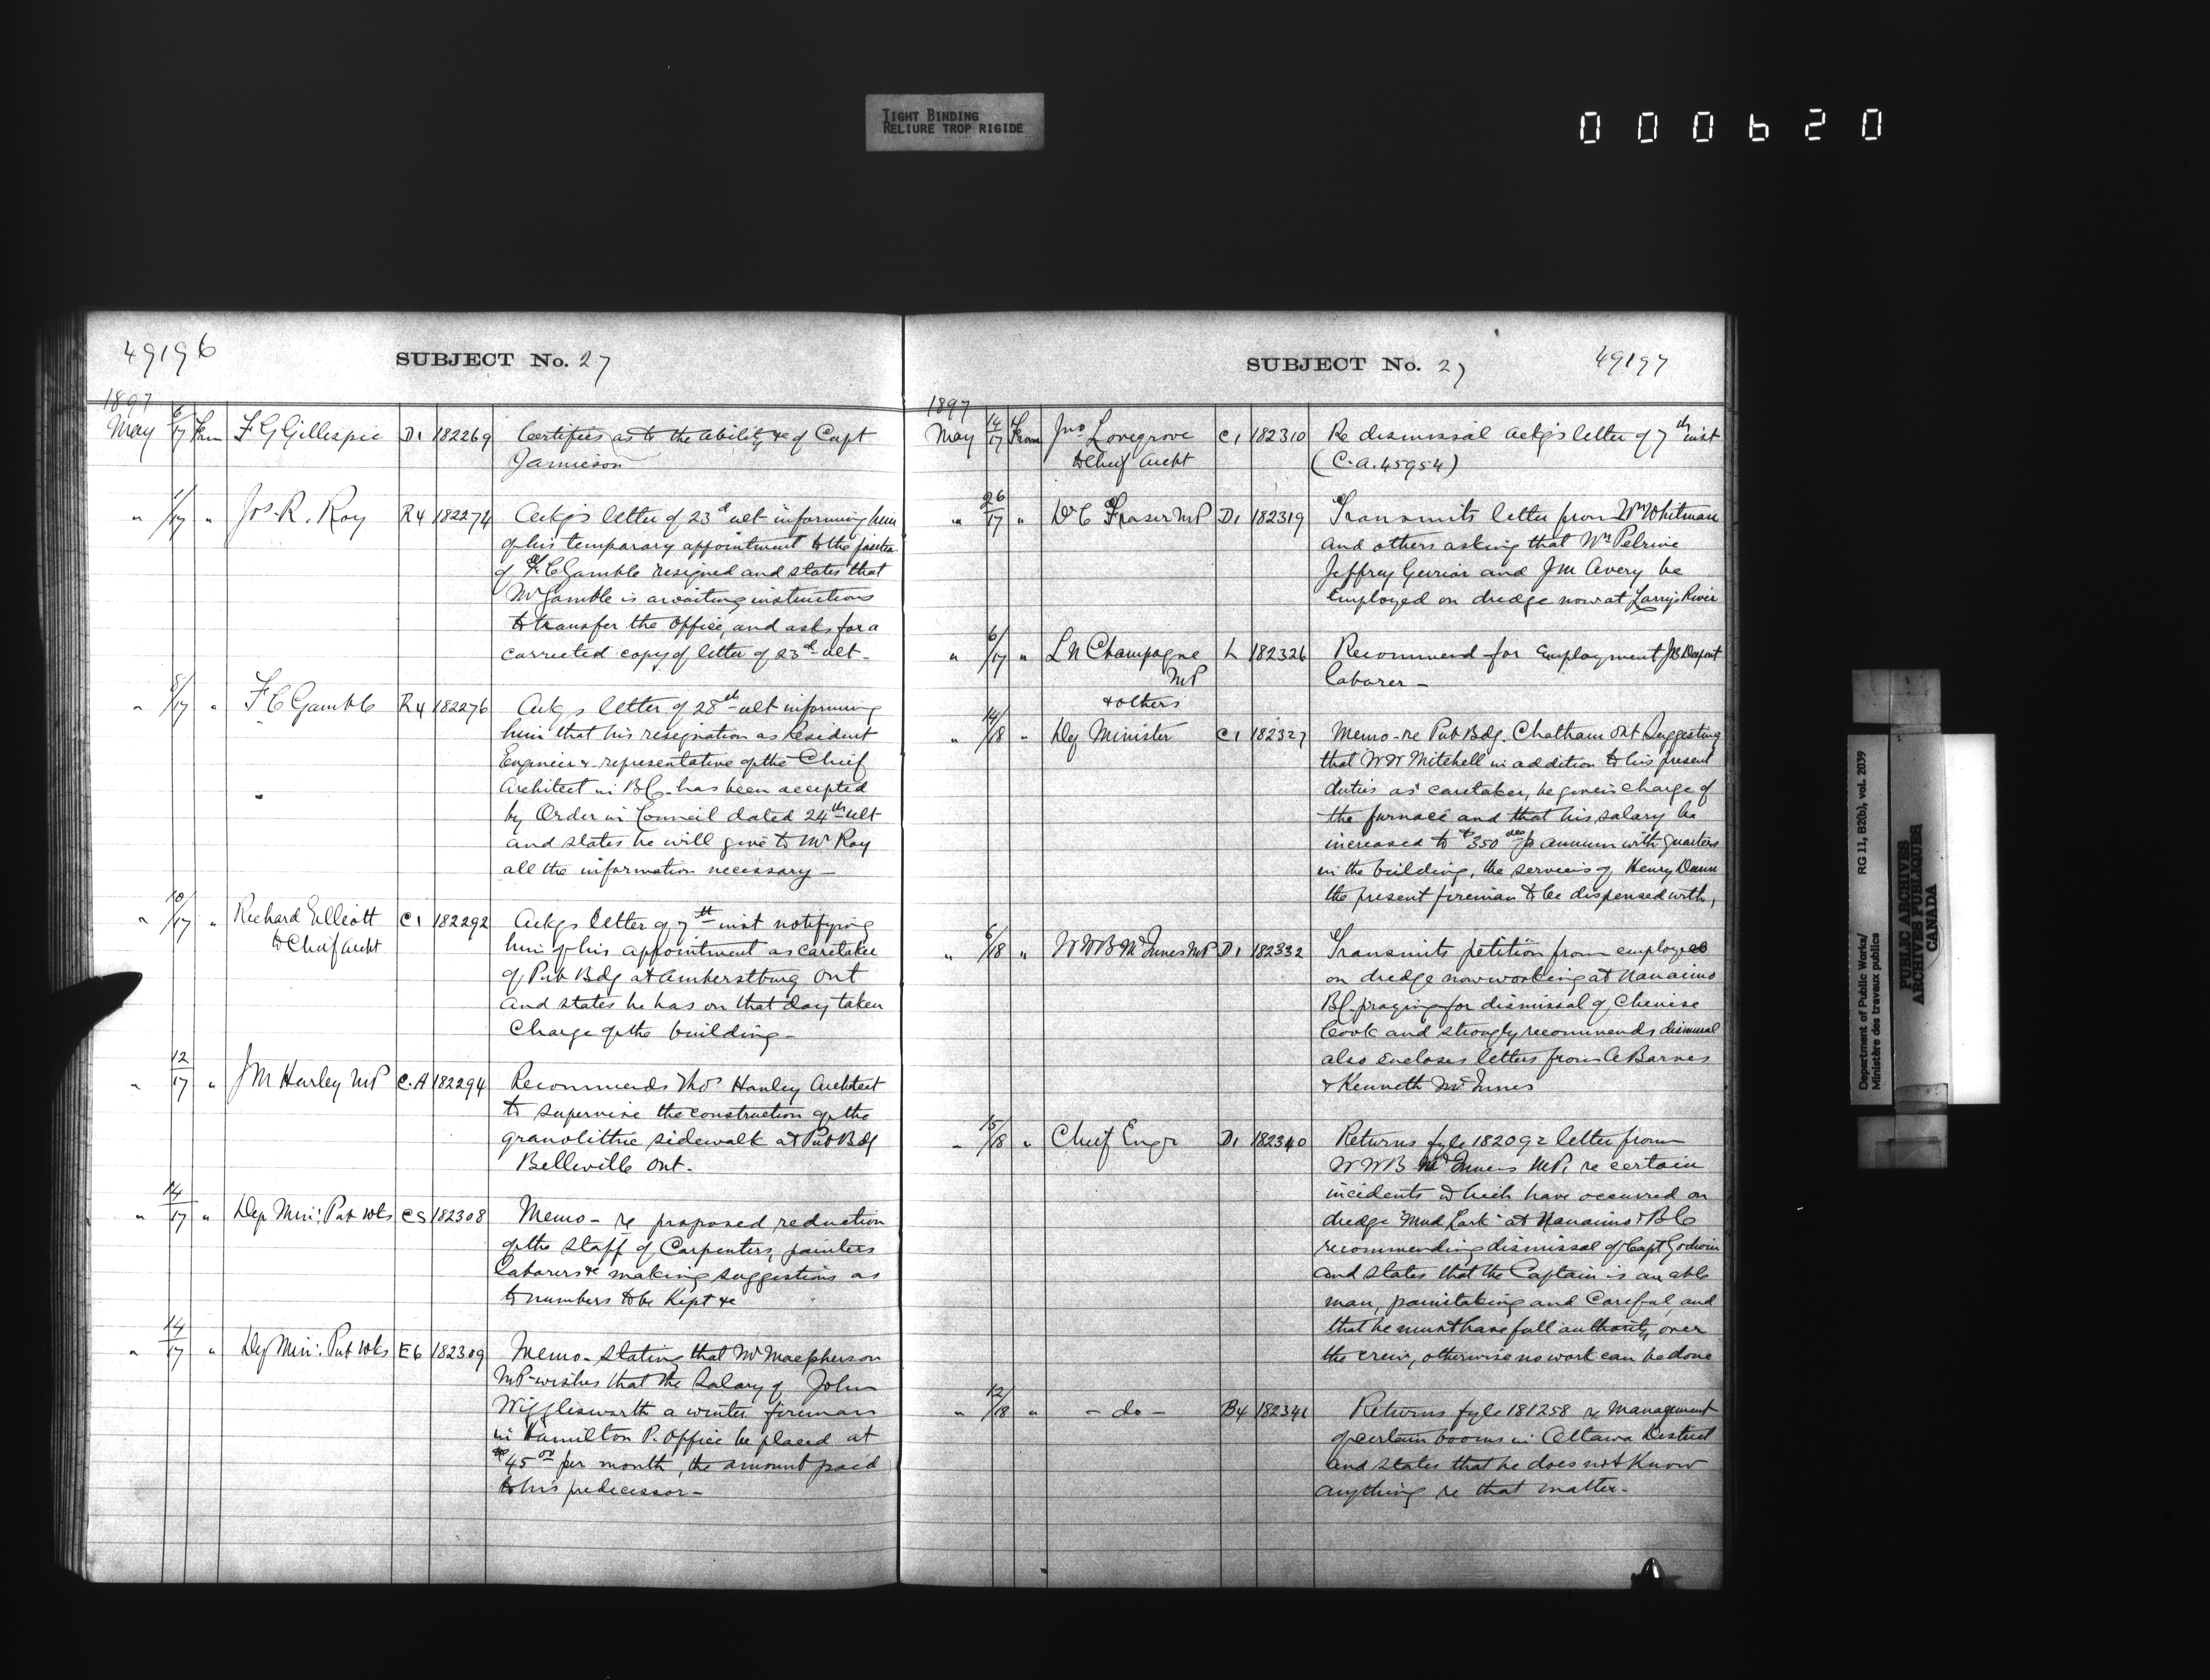 TIGHT BINDING
RELIURE TROP RIGIDE
000620
49196
SUBJECT No. 27
1897
May 6/17 From F G Gillespie D1 182269 Certifies as to the ability &c of Capt
Jamieson
" 1/17 " Jos. R. Roy R4 182274 Ackgs letter of 23d ult informing him
of his temporary appointment to the
of F. C Gamble resigned and states that
Mr Gamble is awaiting instructions
to transfer the office, and asks for a
corrected copy of letter of 23d ult-
" 8/17 " F C Gamble R4 182276 Ackgs letter of 28th ult informing
him that his resignation as Resident
Engineer & representative of the Chief
Architect in B.C. has been accepted
by Order in Council dated 24th ult
and states he will give to Mr Roy
all the information necessary -
" 10/17 " Richard Elliott C1 182292 Ackgs letter of 7th inst notifying
to Chief Archt him of his appointment as caretaker
of Pub Bdg at Amherstburg Ont
and states he has on that day taken
Charge of the building -
" 12/17 " J M Hurley MP C.A 182294 Recommends Thos Hanley Architect
to supervise the construction of the
granolithic sidewalk at Pub Bdg
Belleville Ont.
" 14/17 " Dep Min: Pub Wks CS 182308 Memo - re proposed reduction
of the staff of Carpenters, painters
laborers &c making suggestions as
to numbers to be Kept &c
" 14/17 " Dep Min: Pub Wks E6 182309 Memo - stating that Mr Macpherson
MP wishes that the salary of John
Wigglesworth a winter fireman
in Hamilton P. Office be placed at
$45 00 per month, the amount paid
to his predecessor -
SUBJECT No. 27
49197
1897
May 14/17 From Jno Lovegrove C1 182310 Re dismissal ackgs letter of 7th inst
to Chief Archt (C.A. 45954)
" 26/17 " D C Fraser MP D1 182319 Transmits letter from Wm Whitman
and others asking that Wm Pelrine
Jeffrey Gerrior and J M Avery be
Employed on dredge now at Larrys River
" 6/17 " L N Champagne L 182326 Recommend for Employment JB
MP laborer -
& others
" 14/18 " Dep Minister C1 182327 Memo - re Pub Bdg. Chatham Ont Suggesting
that W W Mitchell in addition to his present
duties as caretaker, be given charge of
the furnace and that his salary be
increased to $350 p annum with quarters
in the building, the services of Henry Dunn
the present fireman to be dispensed with,
" 6/18 " W W B McInnes MP D1 182332 Transmits petition from employees
on dredge now working at Nanaimo
BC praying for dismissal of Chinese
Cook and strongly recommends dismissal
also Encloses letters from A Barnes
& Kenneth McInnes
" 15/18 " Chief Engr D1 182340 Returns fyle 182092 letter from
W W B McInnes MP. re certain
incidents which have occurred on
dredge "Mud Lark" at Nanaimo BC
recommending dismissal of Capt Godwin
and states that the Captain is an able
man, painstaking and Careful, and
that he must have full authority over
the crew, otherwise no work can be done
" 12/18 " - do - B4 182341 Returns fyle 181258 re Management
of certain booms in Ottawa District
and states that he does not Know
anything re that matter -
Department of Public Works/ RG 11, B2(b), vol. 2039
Ministère des travaux publics
PUBLIC ARCHIVES
ARCHIVES PUBLIQUES
CANADA